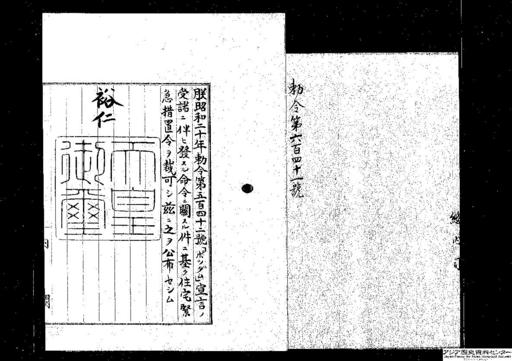 勅令第六百四十一號
朕昭和二十年勅令第五百四十二號「ポツダム」宣言ノ
受諾ニ伴ヒ發スル命令ニ關スル件ニ基ク住宅緊
急措置令ヲ裁可シ茲ニ之ヲ公布セシム
裕仁
天皇
御璽
内閣
アジア歴史資料センター